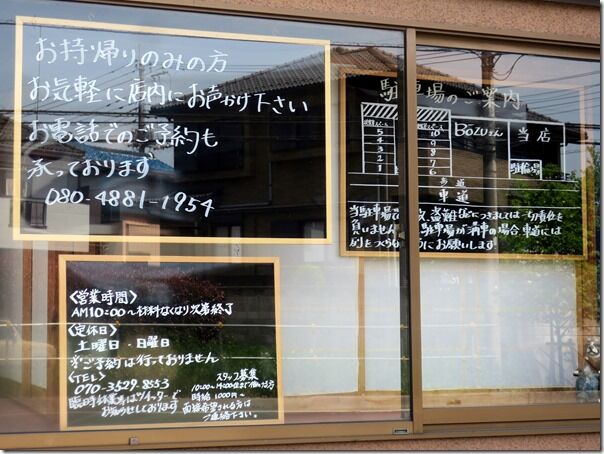 お持帰りのみの方
お気軽に店内にお声かけ下さい
お電話でのご予約も
承っております
080-4881-1954
〈営業時間〉
AM10:00〜材料なくなり次第終了
〈定休日〉
土曜日・日曜日
※ご予約は行っておりません
〈TEL〉
070-3529-8553
臨時休業等はツイッターで
お知らせしております
スタッフ募集
10:00〜14:00位まで働ける方
時給1000円〜
面接希望される方は
ご連絡下さい。
駐車場のご案内
5
4
3
2
1
10
9
8
7
6
BOZUさん
当店
駐輪場
歩道
車道
当駐車場での 盗難等につきましては一切責任を
負いません 駐車場が満車の場合、車道には
列をつくらないようにお願いします